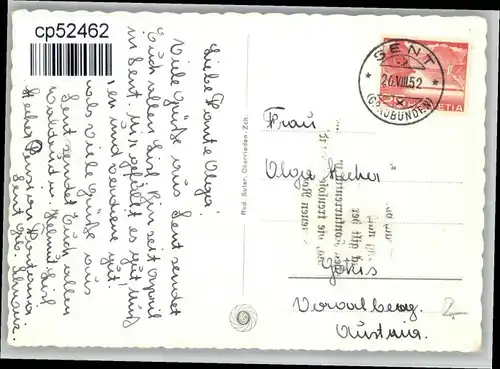 cp52462
Liebe Tante Olga!
Viele Grüße aus Sent sendet
Euch allen Lisl. Bin seit April
in Sent. Mir gefällt es gut hier
und verdiene gut.
viele Grüße aus
Sent sendet Euch allen
Waldtraud u. Helmut Lisl
Hecher Pension Rontana
Sent Gb. Schweiz.
Rud. Suter, Oberrieden-Zch.
SENT
26.VIII.52
(GRAUBÜNDEN)
HELVETIA
Frau
Olga Hecher
Götzis
Vorarlberg.
Austria.